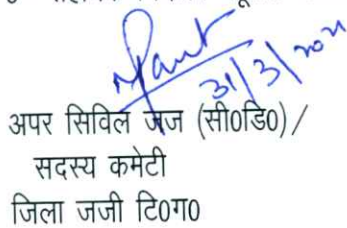 31/3/2021
अपर सिविल जज (सी0डि0) /
सदस्य कमेटी
जिला जजी टि0ग0